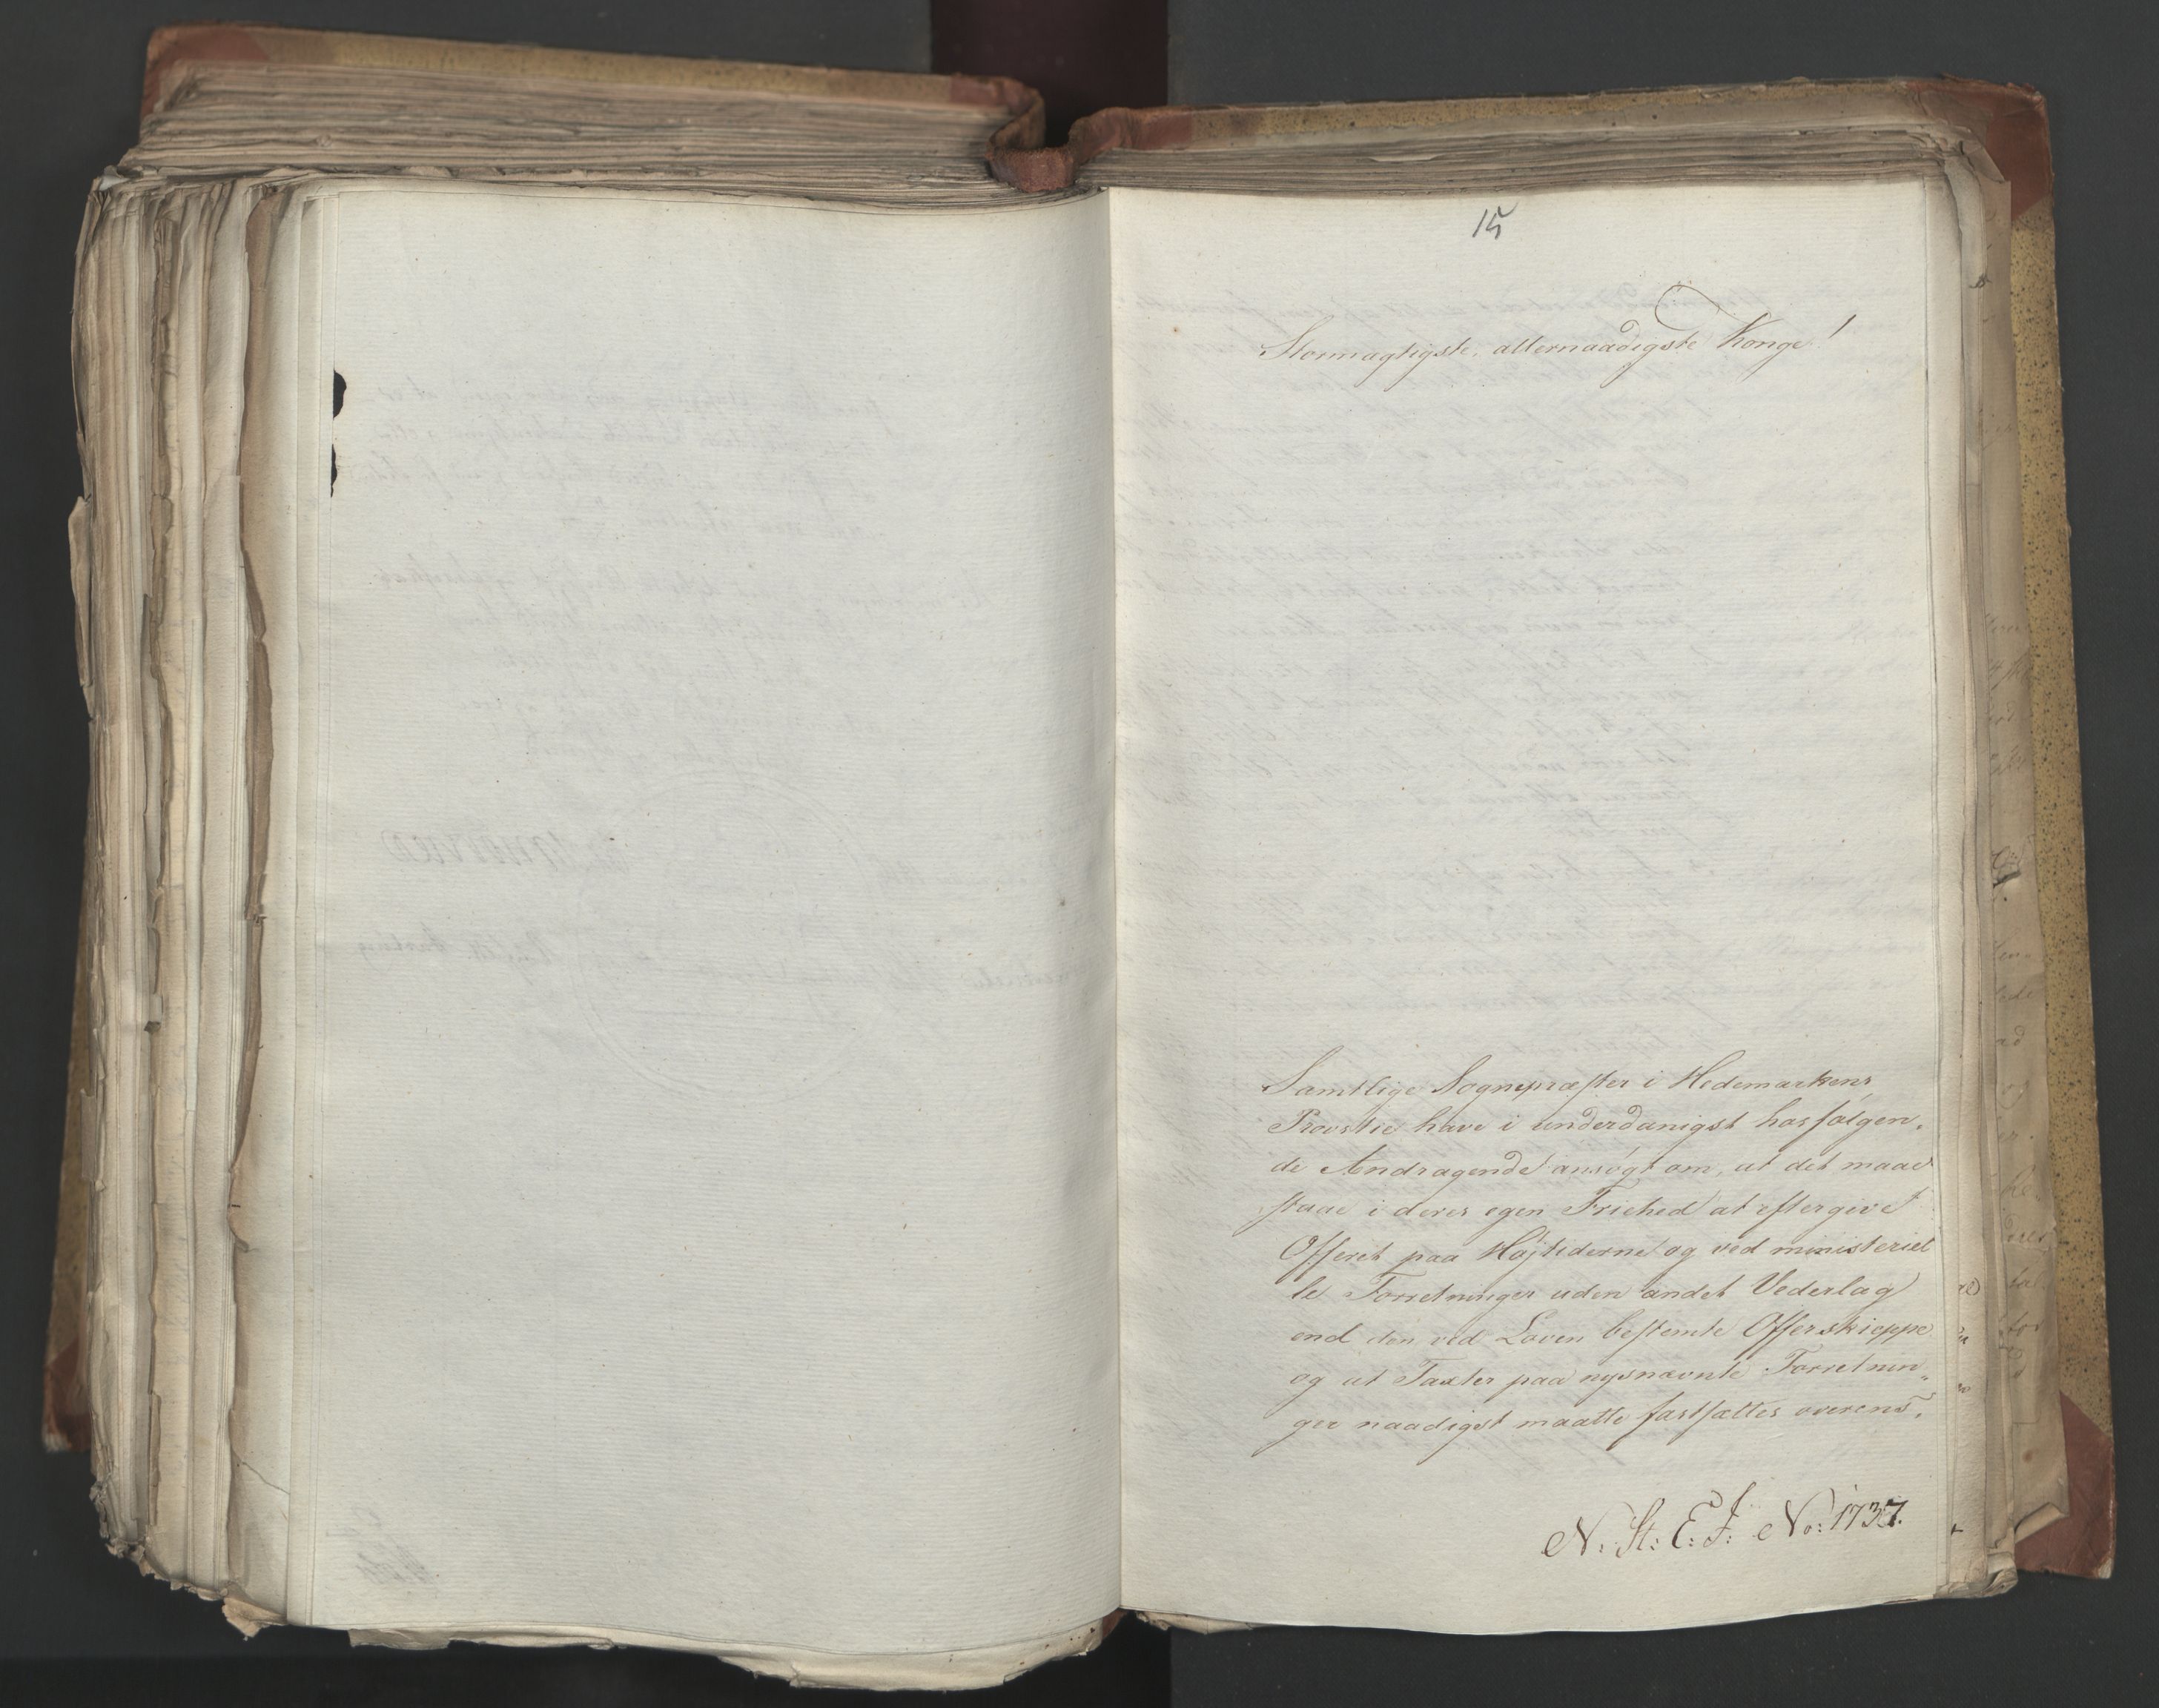 15
Stormægtigste, allernaadigste Konge!
Samtlige Sognepræster i Hedemarkens
Provstie have i underdanigst hosfølgen,
de Andragende ansøgt om, at det maae
staae i deres egen Friehed at eftergive
Offeret paa Højtiderne og ved ministeriel
le Forretninger uden andet Vederlag
end den ved Loven bestemte Offerskieppe
og at Taxter paa nysnævnte Forretnin„
ger naadigst maatte fastsættes overens,
N: St: E: J: No: 1737.